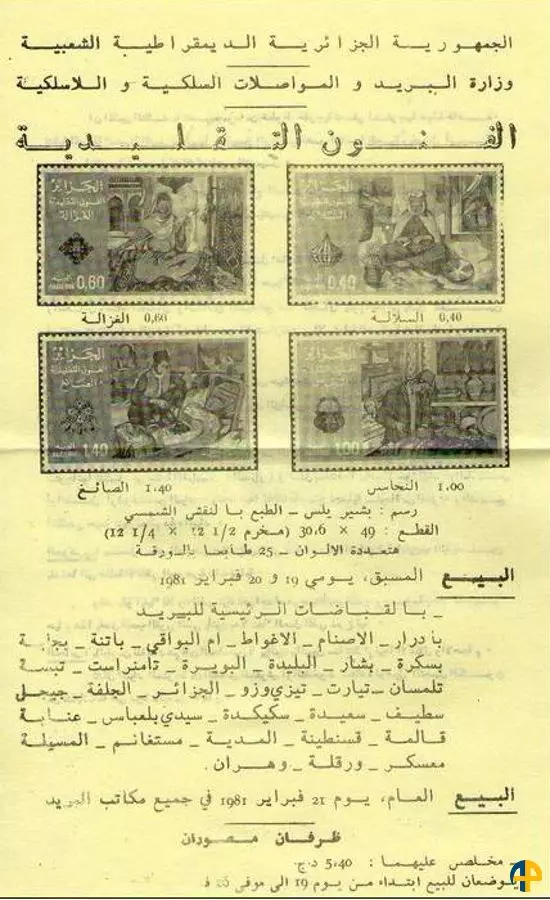 الجمهورية الجزائرية الديمقراطية الشعبية
وزارة البريد و المواصلات السلكية و اللاسلكية
الفنون التقليدية
الجزائر
الفنون التقليدية
الغزالة
0,60
الجزائر
0,40
0,60 الغزالة
0,40 السلالة
الجزائر
الفنون التقليدية
الصائغ
1,40
الجزائر
الفنون التقليدية
1,00
1.40 الصائغ
1.00 النحاس
رسم : بشير يلس – الطبع بالنقش الشمسي
القطع : 49 × 30،6 (مخرم 1/2 12 × 1/4 12)
متعددة الالوان – 25 طابعا بالورقة
البيع المسبق، يومي 19 و 20 فبراير 1981
_ بالقباضات الرئيسية للبريد
بأدرار _ الاصنام _ الاغواط _ ام البواقي _ باتنة _ بجاية
بسكرة _ بشار _ البليدة _ البويرة _ تامنراست _ تبسة
تلمسان _ تيارت _ تيزي وزو _ الجزائر _ الجلفة _ جيجل
سطيف _ سعيدة _ سكيكدة _ سيدي بلعباس _ عنابة
قالمة _ قسنطينة _ المدية _ مستغانم _ المسيلة
معسكر _ ورقلة _ وهران .
البيع العام، يوم 21 فبراير 1981 في جميع مكاتب البريد
ظرفان مصوران
– مخلص عليهما : 5،40 د.ج.
يوضعان للبيع ابتداء من يوم 19 الى موفى